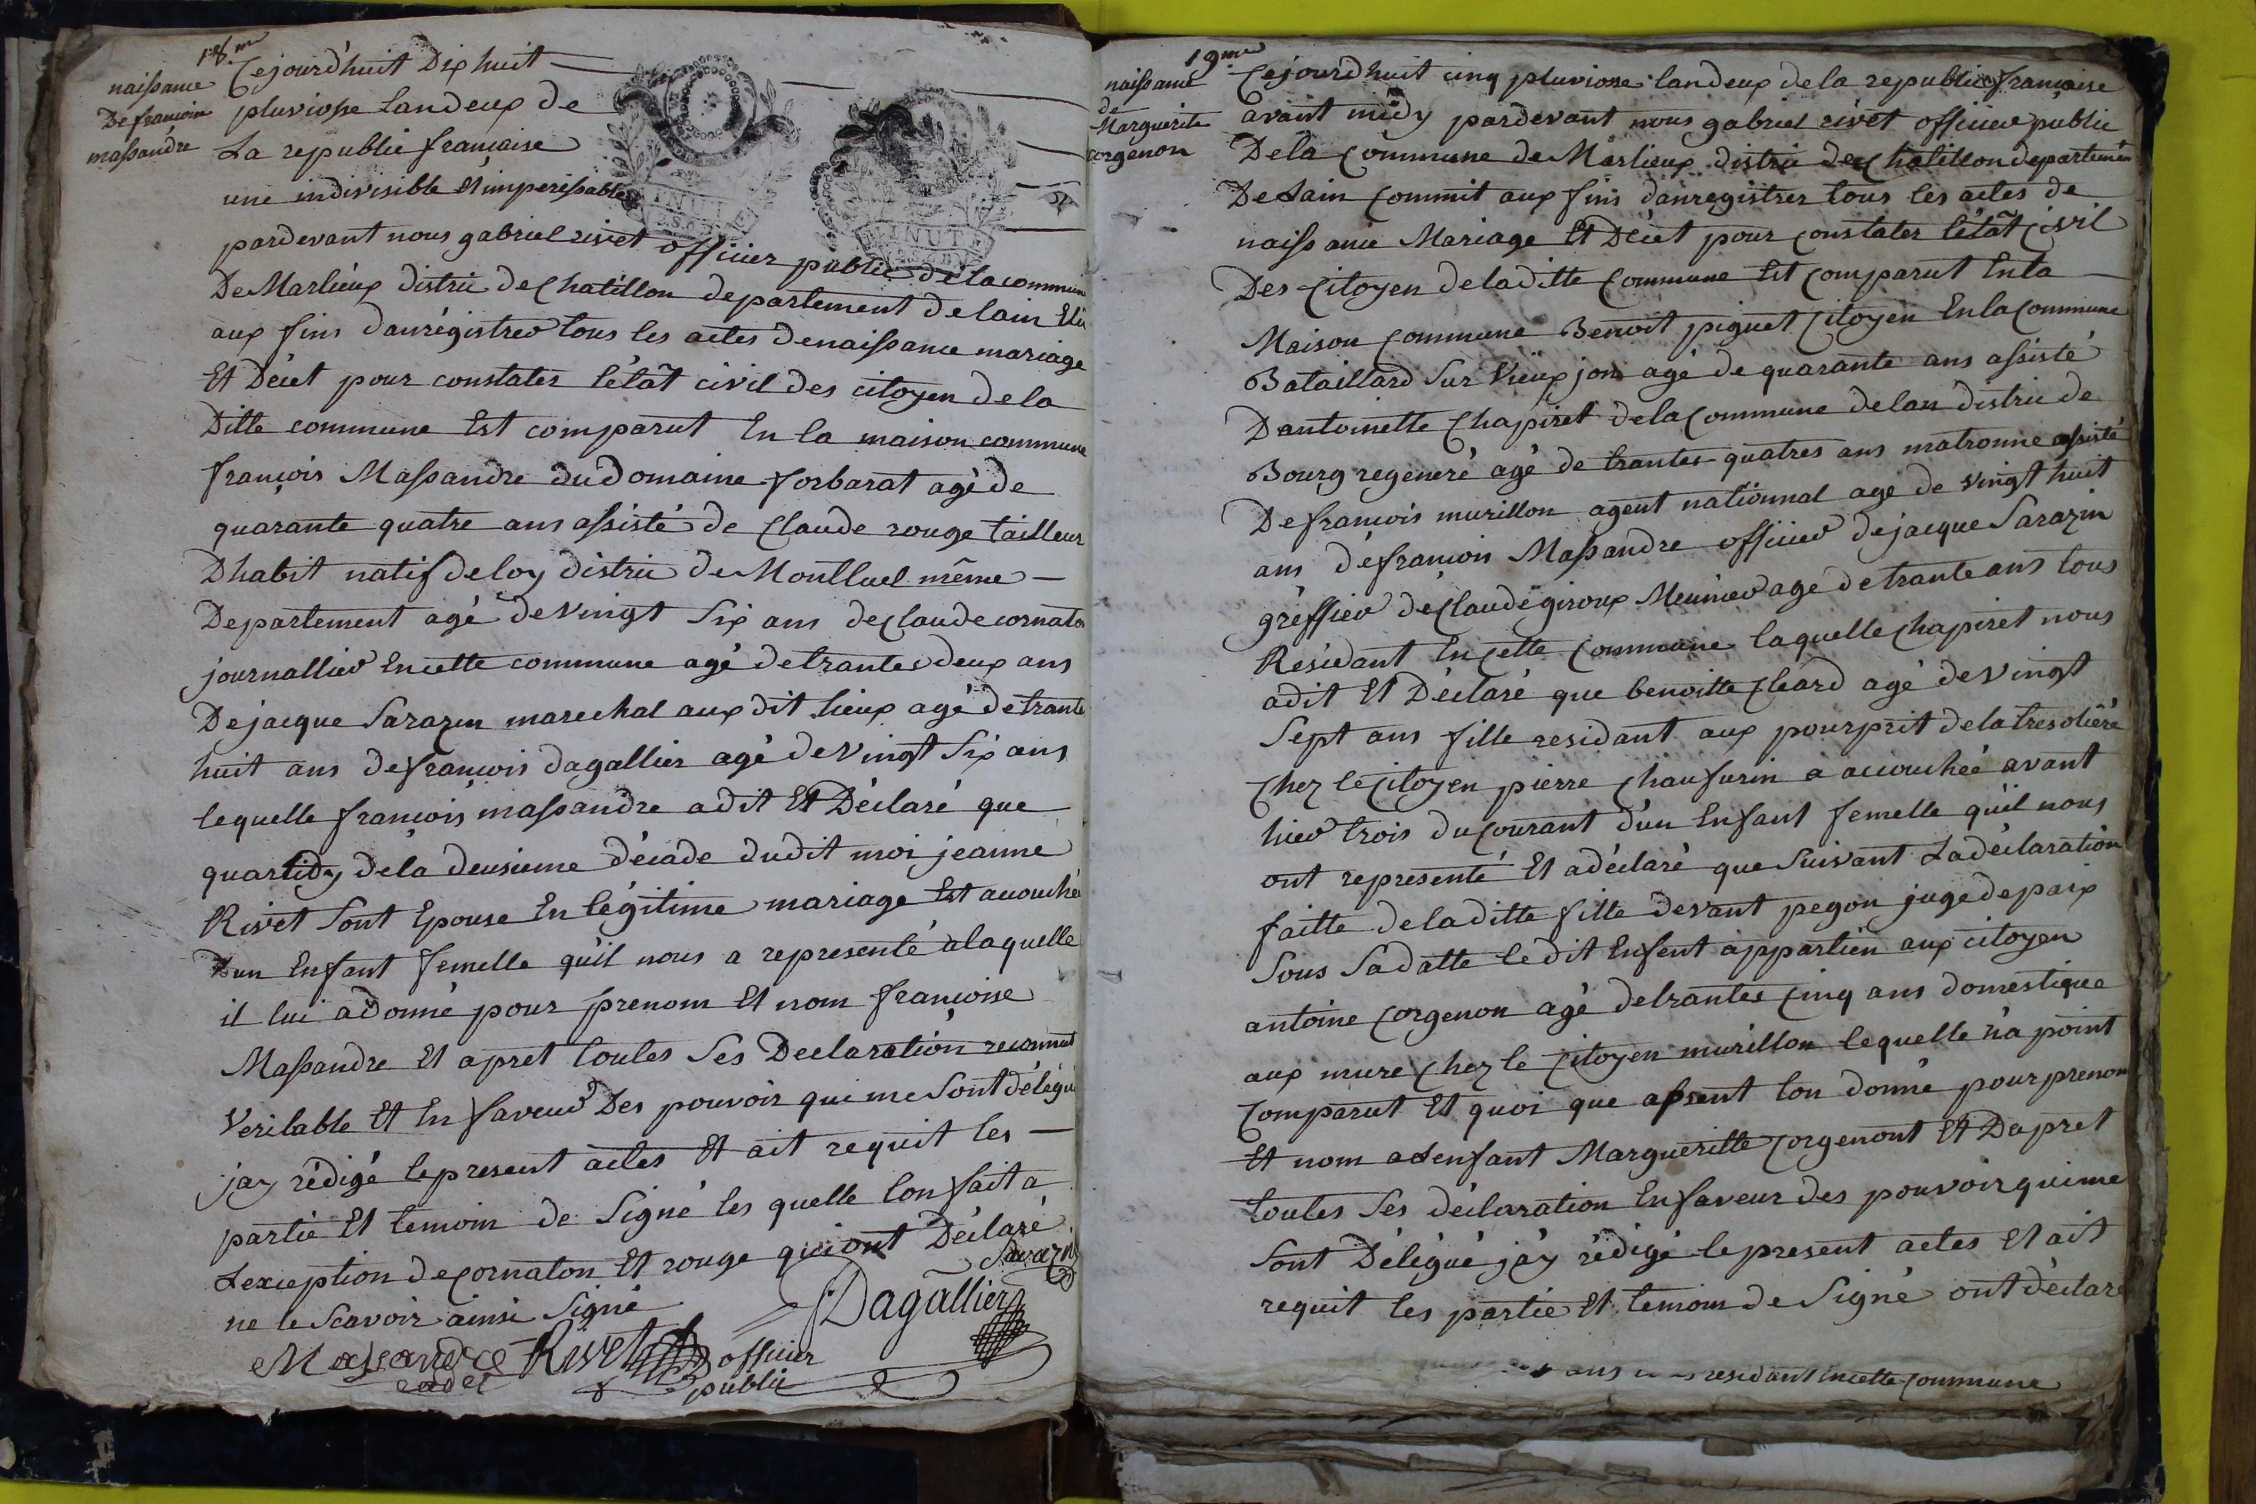 18.me
naissance
De francoise
massandre
Cejourd'huit Dix huit
pluviosse Landeux de
La republic francaise
une indivisible Et imperissable
MINUTE
MINUTE
pardevant nous gabriel rivet officier public de la commune
De Marlieux distric de Chatillon departement de lain Elu
aux fins d'anrégistrer tous les actes de naissance mariage
Et Décet pour constater l'êtât civil des citoyen de la
Ditte commune Est comparut En la maison commune
françois Massandre du Domaine forbarat agé de
quarante quatre ans assisté de Claude rouge tailleur
D'habit natif de loy distric de Montluel même
Departement agé de vingt Six ans de Claude cornaton
journallier En cette commune agé de trantes deux ans
De jacque Sarazin marechal aux dit lieux agé de trante
huit ans de francois dagallier agé de vingt Six ans
lequelle francois massandre a dit Et Déclaré que
quartidy de la deusieme décade dudit moi jeanne
Rivet Sont Epouse En légitime mariage Est acouchée
D'un Enfant femelle qu'il nous a representé a laquelle
il lui a donné pour prenom Et nom francoise
Massandre Et apret toutes Ses Declaration reconnut
Veritable Et En faveur Des pouvoir qui me Sont délégué
j'ay rédigé le present actes Et ait requit les
partie Et temoin de Signé les quelle lon fait a
Lexception de Cornaton Et rouge qui ont Déclaré
ne le Scavoir ainsi Signé
Sarazin
Dagallier
Massandre
cadet
Rivet officier
public
19me
naissance
de
Marguerite
corgenon
Cejourdhuit cinq pluviose landeux de la republic francaise
avant midy pardevant nous gabriel rivet officier public
De la Commune de Marlieux distric de Chatillon departement
De Lain Commit aux fins d'anregistrer tous les actes de
naissance Mariage Et Décet pour constater l'êtât Civil
Des Citoyen de laditte Commune Est Comparut En la
Maison Commune Benoit piguet Citoyen En la Commune
Bataillard Sur Vieux jon agé de quarante ans assisté
D'antoinette Chapiret de la Commune de lan distric de
Bourg regeneré agé de trantes quatres ans matronne assisté
De francois murillon agent national age de vingt huit
ans de francois Massandre officier de jacque Sarazin
gréffier de Claude giroux Meunier agé de trante ans tous
Residant En Cette Commune laquelle Chapiret nous
a dit Et Déclaré que benoitte Cleard agé de vingt
Sept ans fille residant aux pourprit de la tresoliere
Chez le Citoyen pierre Chaufurin a acouchée avant
hier trois du Courant d'un Enfant femelle qu'il nous
ont representé Et a déclaré que Suivant La déclaration
faitte de laditte fille devant pegon juge de paix
Sous Sa datte le dit Enfent appartien aux citoyen
antoine Corgenon agé de trantes Cinq ans domestique
aux mure Chez le Citoyen murillon lequelle n'a point
Comparut Et quoi que absent lon donné pour prenom
Et nom a Lenfant Margueritte Corgenont Et Dapret
toutes Ses déclaration En faveur des pouvoir qui me
Sont Délégué j'ay rédigé le present actes Et ait
requit les partie Et temoin de Signé ont déclaré
ans residant En cette Commune